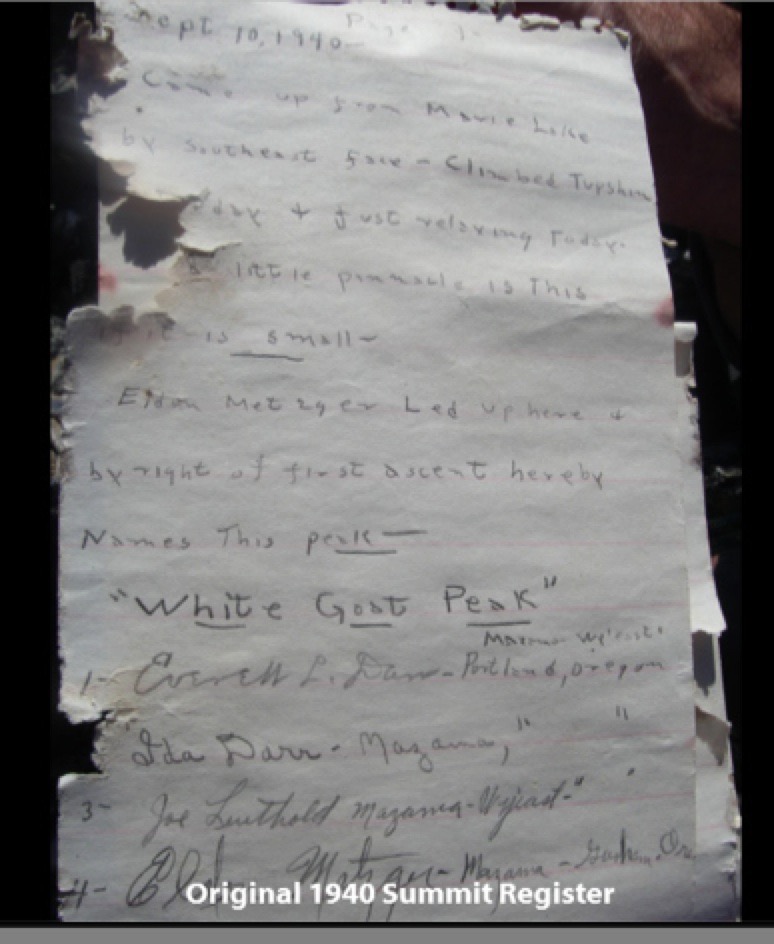 Sept 10, 1940 Page 1-
Came up from Marie Lake
by southeast face - Climbed Tupshin
& just relaxing Today.
little pinnacle is This
it is small-
Eldon Metzger Led up here &
by right of first ascent hereby
Names This peak—
"White Goat Peak"
Mazama Wy'east.
1- Everett L. Darr - Portland, Oregon
Ida Darr - Mazama, " "
3- Joe Leuthold Mazama-Wyeast- "
4- Metzger - Mazama - Ore.
Original 1940 Summit Register